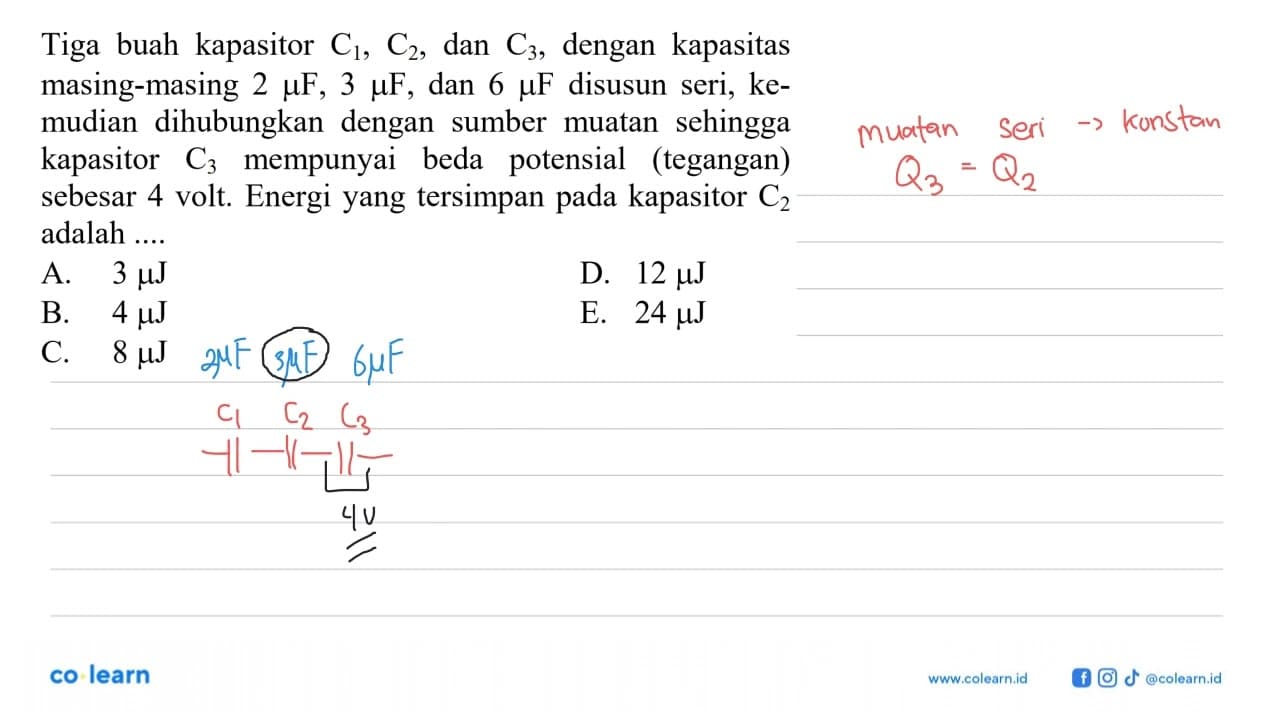 Tiga buah kapasitor C₁, C₂, dan C₃, dengan kapasitas
masing-masing 2 μF, 3 μF, dan 6 μF disusun seri, ke-
mudian dihubungkan dengan sumber muatan sehingga
kapasitor C₃ mempunyai beda potensial (tegangan)
sebesar 4 volt. Energi yang tersimpan pada kapasitor C₂
adalah ....
A. 3 μJ
B. 4 μJ
C. 8 μJ
D. 12 μJ
E. 24 μJ
muatan seri -> konstan
Q₃ = Q₂
2μF 3μF 6μF
C₁ C₂ C₃
4V
co learn
www.colearn.id
@colearn.id